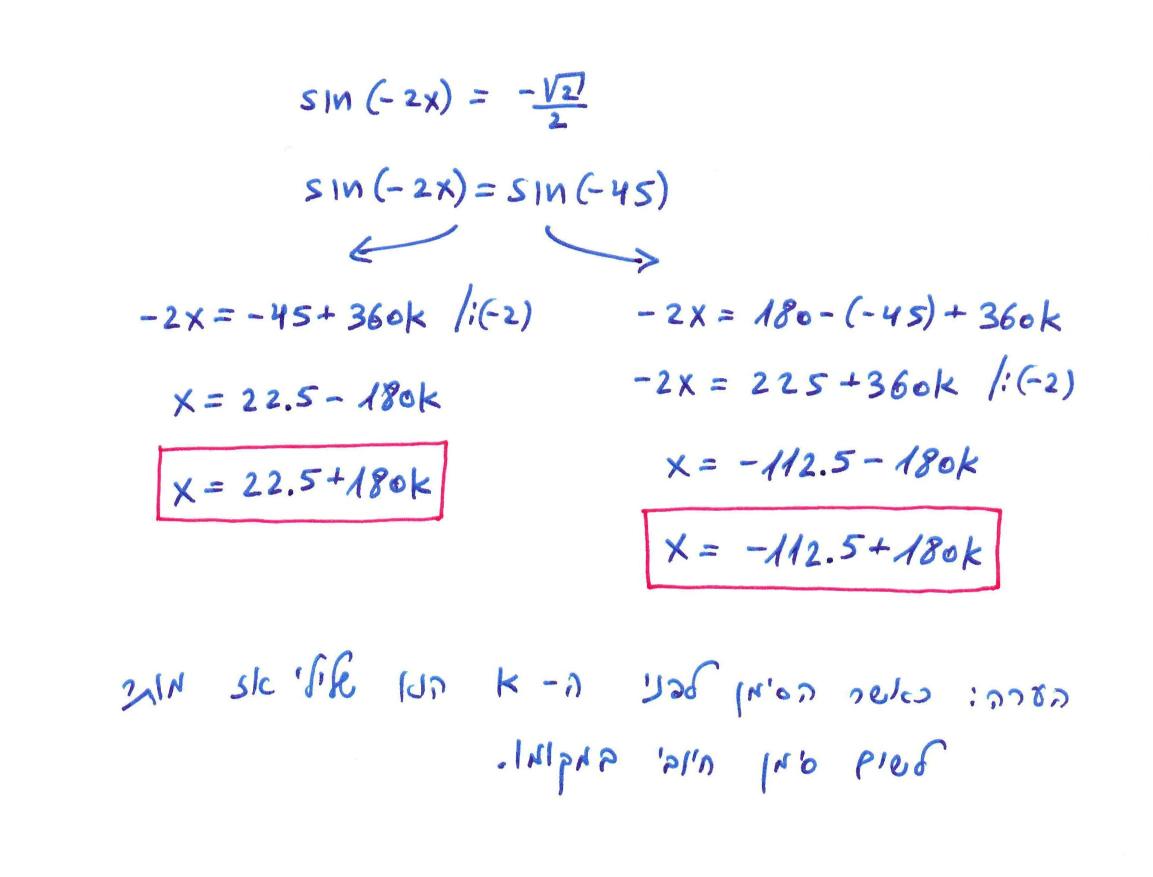 sin(-2x) = -√2/2
sin(-2x) = sin(-45)
-2x = -45 + 360k /:(-2)
x = 22.5 - 180k
x = 22.5 + 180k
-2x = 180 - (-45) + 360k
-2x = 225 + 360k /:(-2)
x = -112.5 - 180k
x = -112.5 + 180k
הערה: כאשר הסימן לפני ה- k הנו שלילי אז מותר
לשים סימן חיובי במקומו.